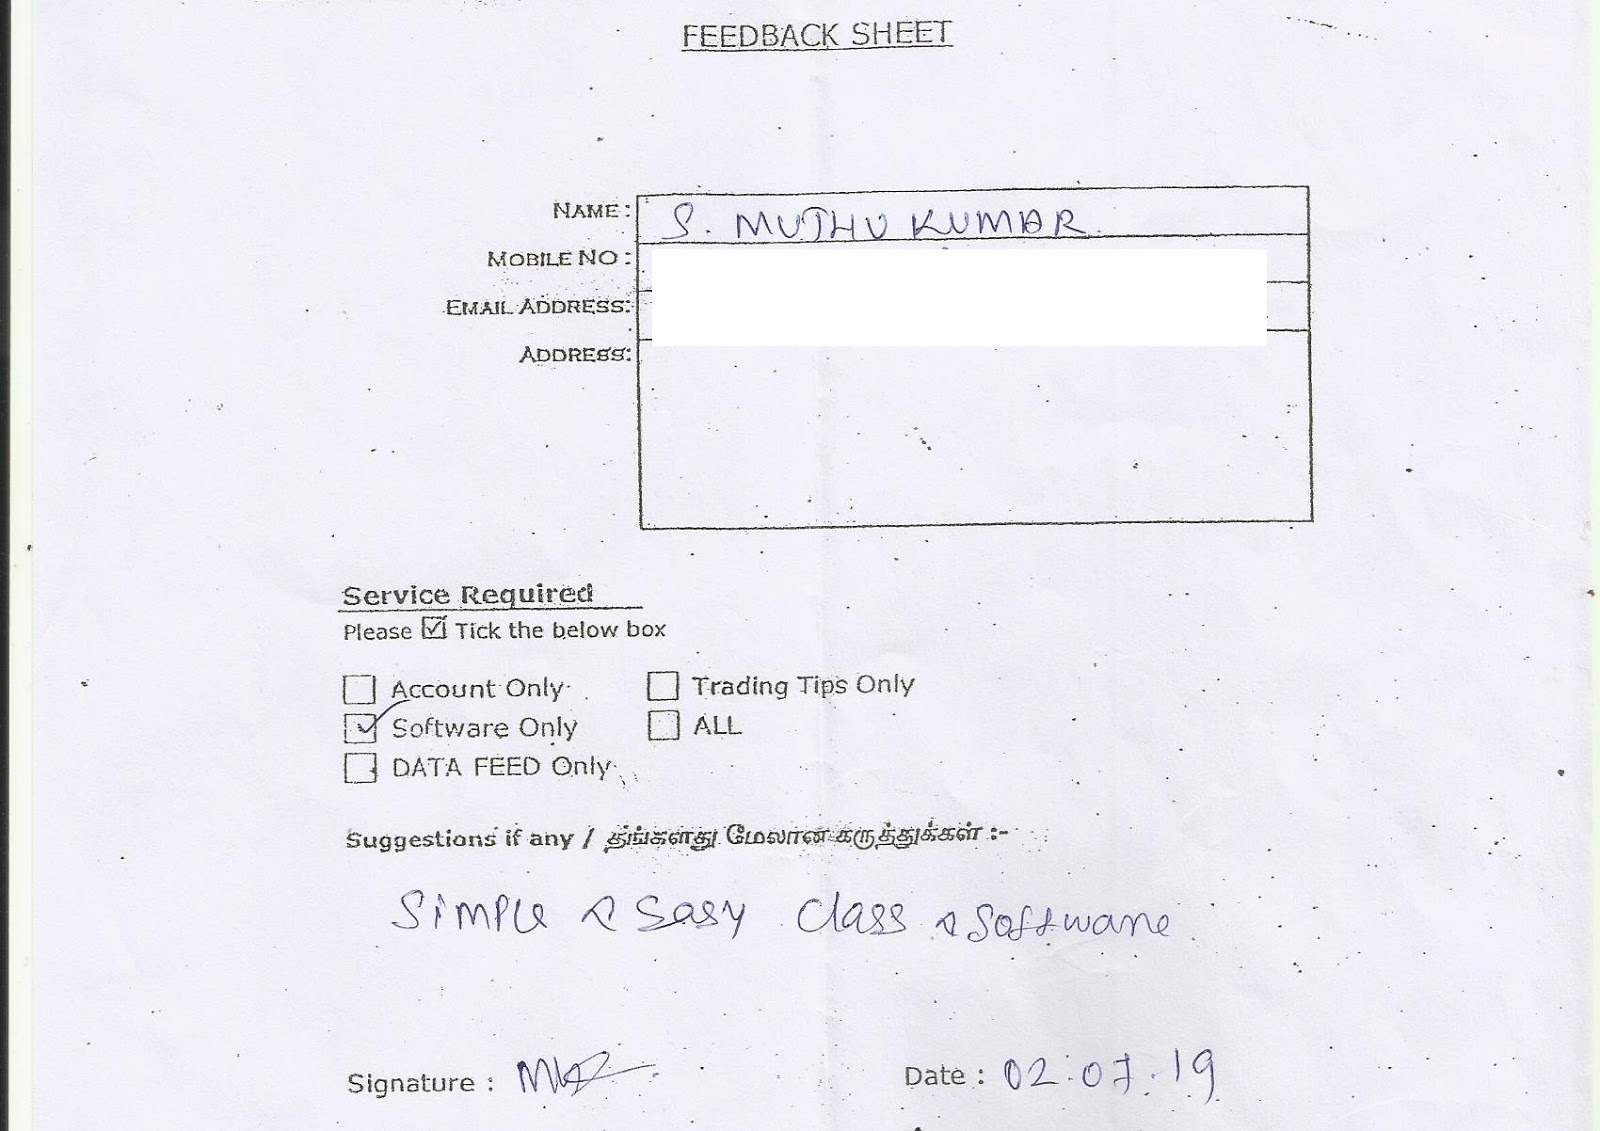 FEEDBACK SHEET
NAME: S. MUTHU KUMAR.
MOBILE NO:
EMAIL ADDRESS:
ADDRESS:
Service Required
Please ☑ Tick the below box
Account Only
Trading Tips Only
Software Only
ALL
DATA FEED Only
Suggestions if any / தங்களது மேலான கருத்துக்கள் :-
SIMPLE & Easy Class & Software
Signature :
Date : 02.07.19